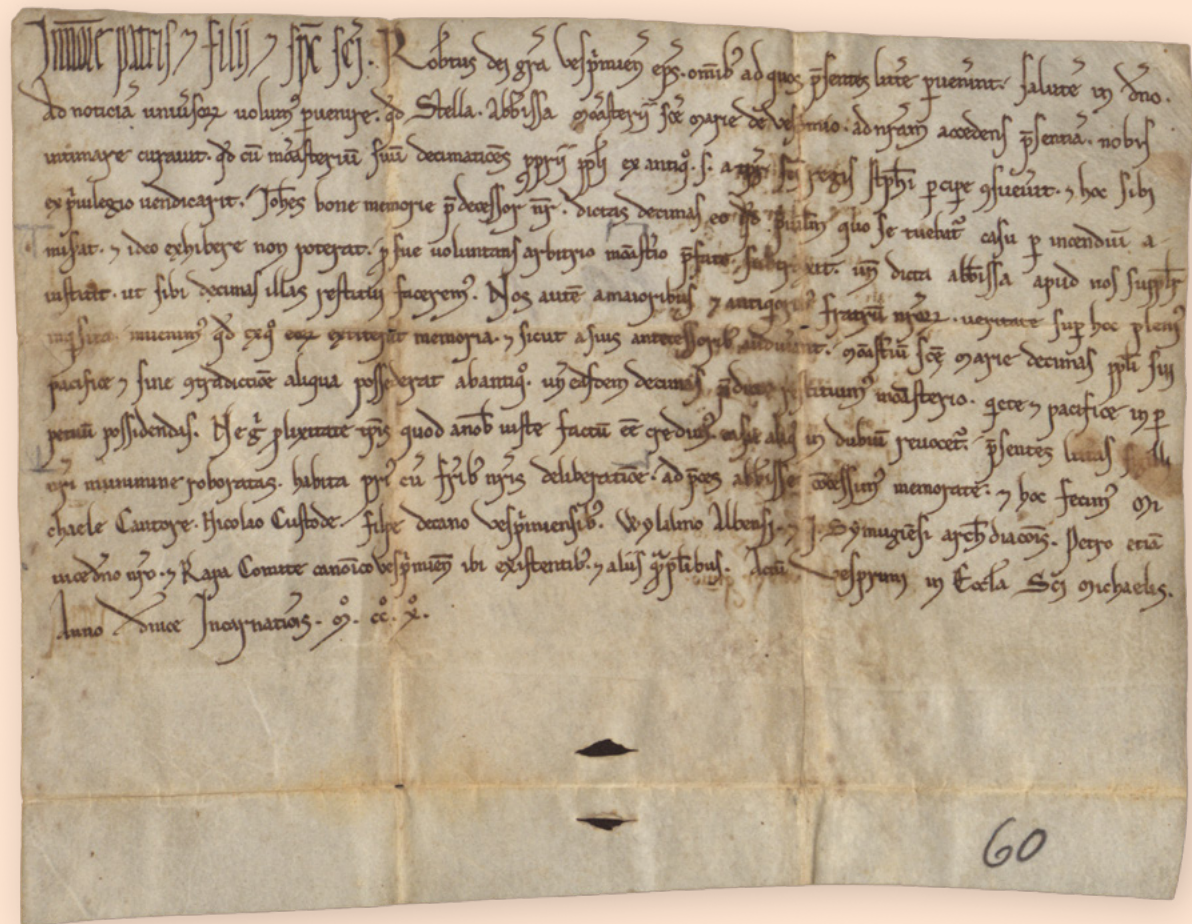 Innoīe patris ⁊ filii ⁊ sp̄c sc̄i. Rob̄tus dei gr̄a vesp̄miēn ep̄s. om̄ib' ad quos p̄sentes litt̄e ꝑuenerint. salutē in dn̄o.
Ad noticiā uniũsoꝝ uolum' ꝑuenire. qd̄ Stella. Abb̄issa mōasterij sc̄e marie de uesp̄mio. ad nr̄am accedens p̄sentiā. nobis
intimare curauit. qd̄ cū mōasteriū suū decimatiōes ꝓprij ppl̄i ex antiqo. s. a sc̄i regis steph̄i ꝑcipe ꝯsueuit. ⁊ hoc sibi
ex p̄uilegio uendicarit. Joh̄es bone memorie p̄decessor nr̄. dictas decimas eo qd̄ p̄uilēm quo se tuebat' casu ꝑ incendiū a
misat. ⁊ ideo exhibere non poterat. ꝓ sue uoluntatis arbitrio mōast̄io p̄fato. subtraxit. un̄ dicta abb̄issa apud nos suppl̄r
institit. ut sibi decimas illas restitui facerem'. Nos autē a maioribus ⁊ antiqorib' fratrū nr̄oꝝ. ueritate suꝑ hoc pleni'
inq̄sita inuenim' qd̄ exqo eoꝝ extiterat memoria. ⁊ sicut a suis antecessorib' audiuerant. mōastiū sc̄e marie decimas ppl̄i sui
pacifice ⁊ sine ꝯtradictiōe aliqua possederat ab antiqo. un̄ easdem decimas p̄dicto restituim' mōasterio. qete ⁊ pacifice in ꝑ
petuū possidendas. Ne gͥ ꝓlixitate tp̄is quod a nob' iuste factū eē credim' in dubiū reuocet'. p̄sentes litt̄as sigilli
nr̄i munimine roboratas. habita pri' cū fr̄ib' nr̄is deliberatiōe. ad p̄ces abb̄isse cōcessim' memorate. ⁊ hoc fecim' Mi
chaele Cantore. Nicolao Custode. filipe decano vesp̄miensib'. Wylalmo Albensi. ⁊ J. Symugiēsi arch̄diacoīs. Petro etiā
uicedn̄o nr̄o. ⁊ Rapa Comite canōico vesp̄miēn ibi existentib'. ⁊ aliis q̄pl̄ibus. Actū Vesprimi in Eccl̄a Sc̄i Michaelis.
Anno Dn̄ice Incarnatiōis. M̊. cc̊. x̊.
60